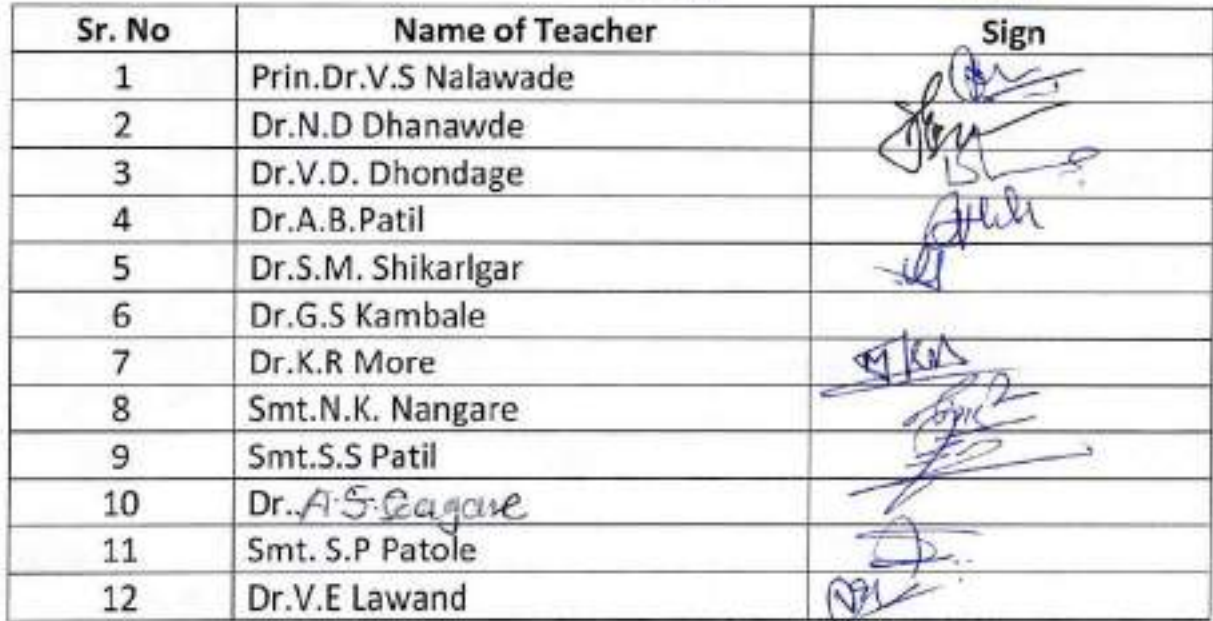 Sr. No Name of Teacher Sign
1 Prin.Dr.V.S Nalawade
2 Dr.N.D Dhanawde
3 Dr.V.D. Dhondage
4 Dr.A.B.Patil
5 Dr.S.M. Shikarlgar
6 Dr.G.S Kambale
7 Dr.K.R More
8 Smt.N.K. Nangare
9 Smt.S.S Patil
10 Dr..A.S.
11 Smt. S.P Patole
12 Dr.V.E Lawand